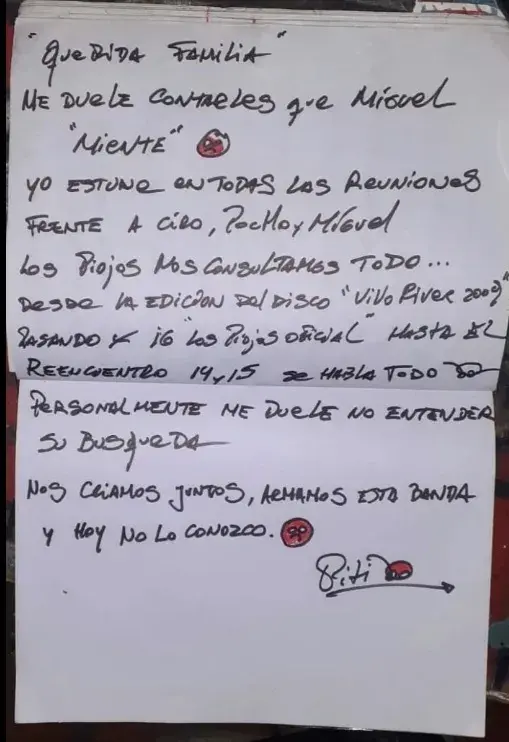 "QUERIDA FAMILIA"
ME DUELE CONTARLES QUE MIGUEL
"MIENTE"
YO ESTUVE EN TODAS LAS REUNIONES
FRENTE A CIRO, POCHO Y MIGUEL
LOS PIOJOS NOS CONSULTAMOS TODO...
DESDE LA EDICIÓN DEL DISCO "VIVO RIVER 2009"
PASANDO X IG "LOS PIOJOS OFICIAL" HASTA EL
REENCUENTRO 14, 15 SE HABLA TODO
PERSONALMENTE ME DUELE NO ENTENDER
SU BUSQUEDA
NOS CRIAMOS JUNTOS, ARMAMOS ESTA BANDA
Y HOY NO LO CONOZCO.
Piti